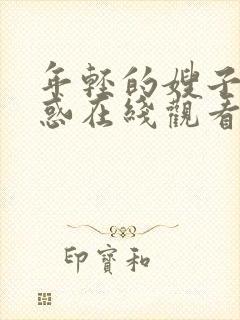 年轻的嫂子
惑在线觀看
印寶和